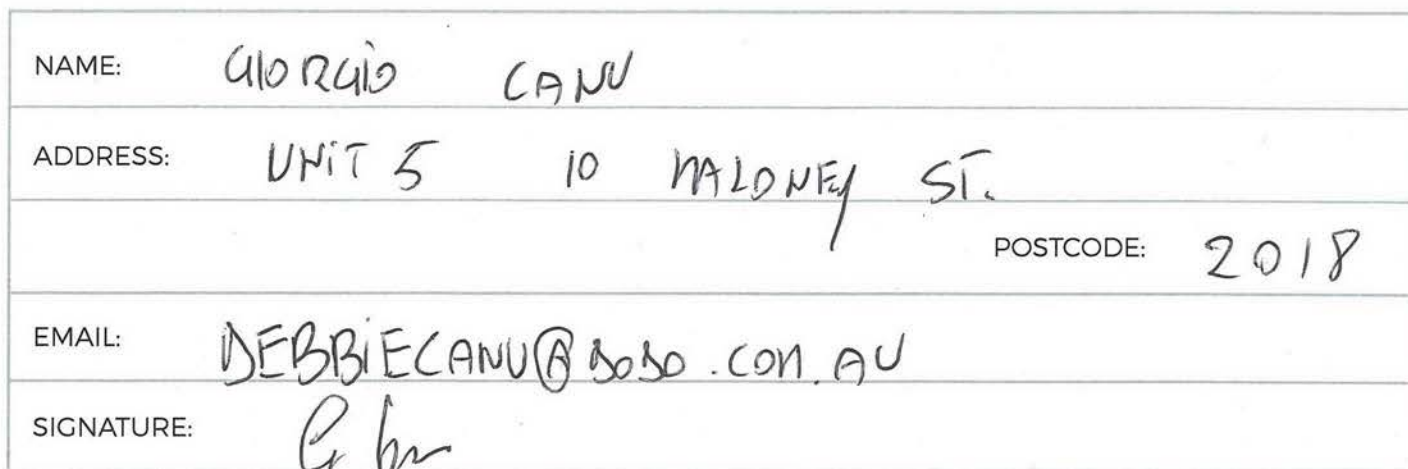 NAME: GIORGIO CANU
ADDRESS: UNIT 5 10 MALONEY ST.
POSTCODE: 2018
EMAIL: DEBBIECANU@DODO.COM.AU
SIGNATURE: